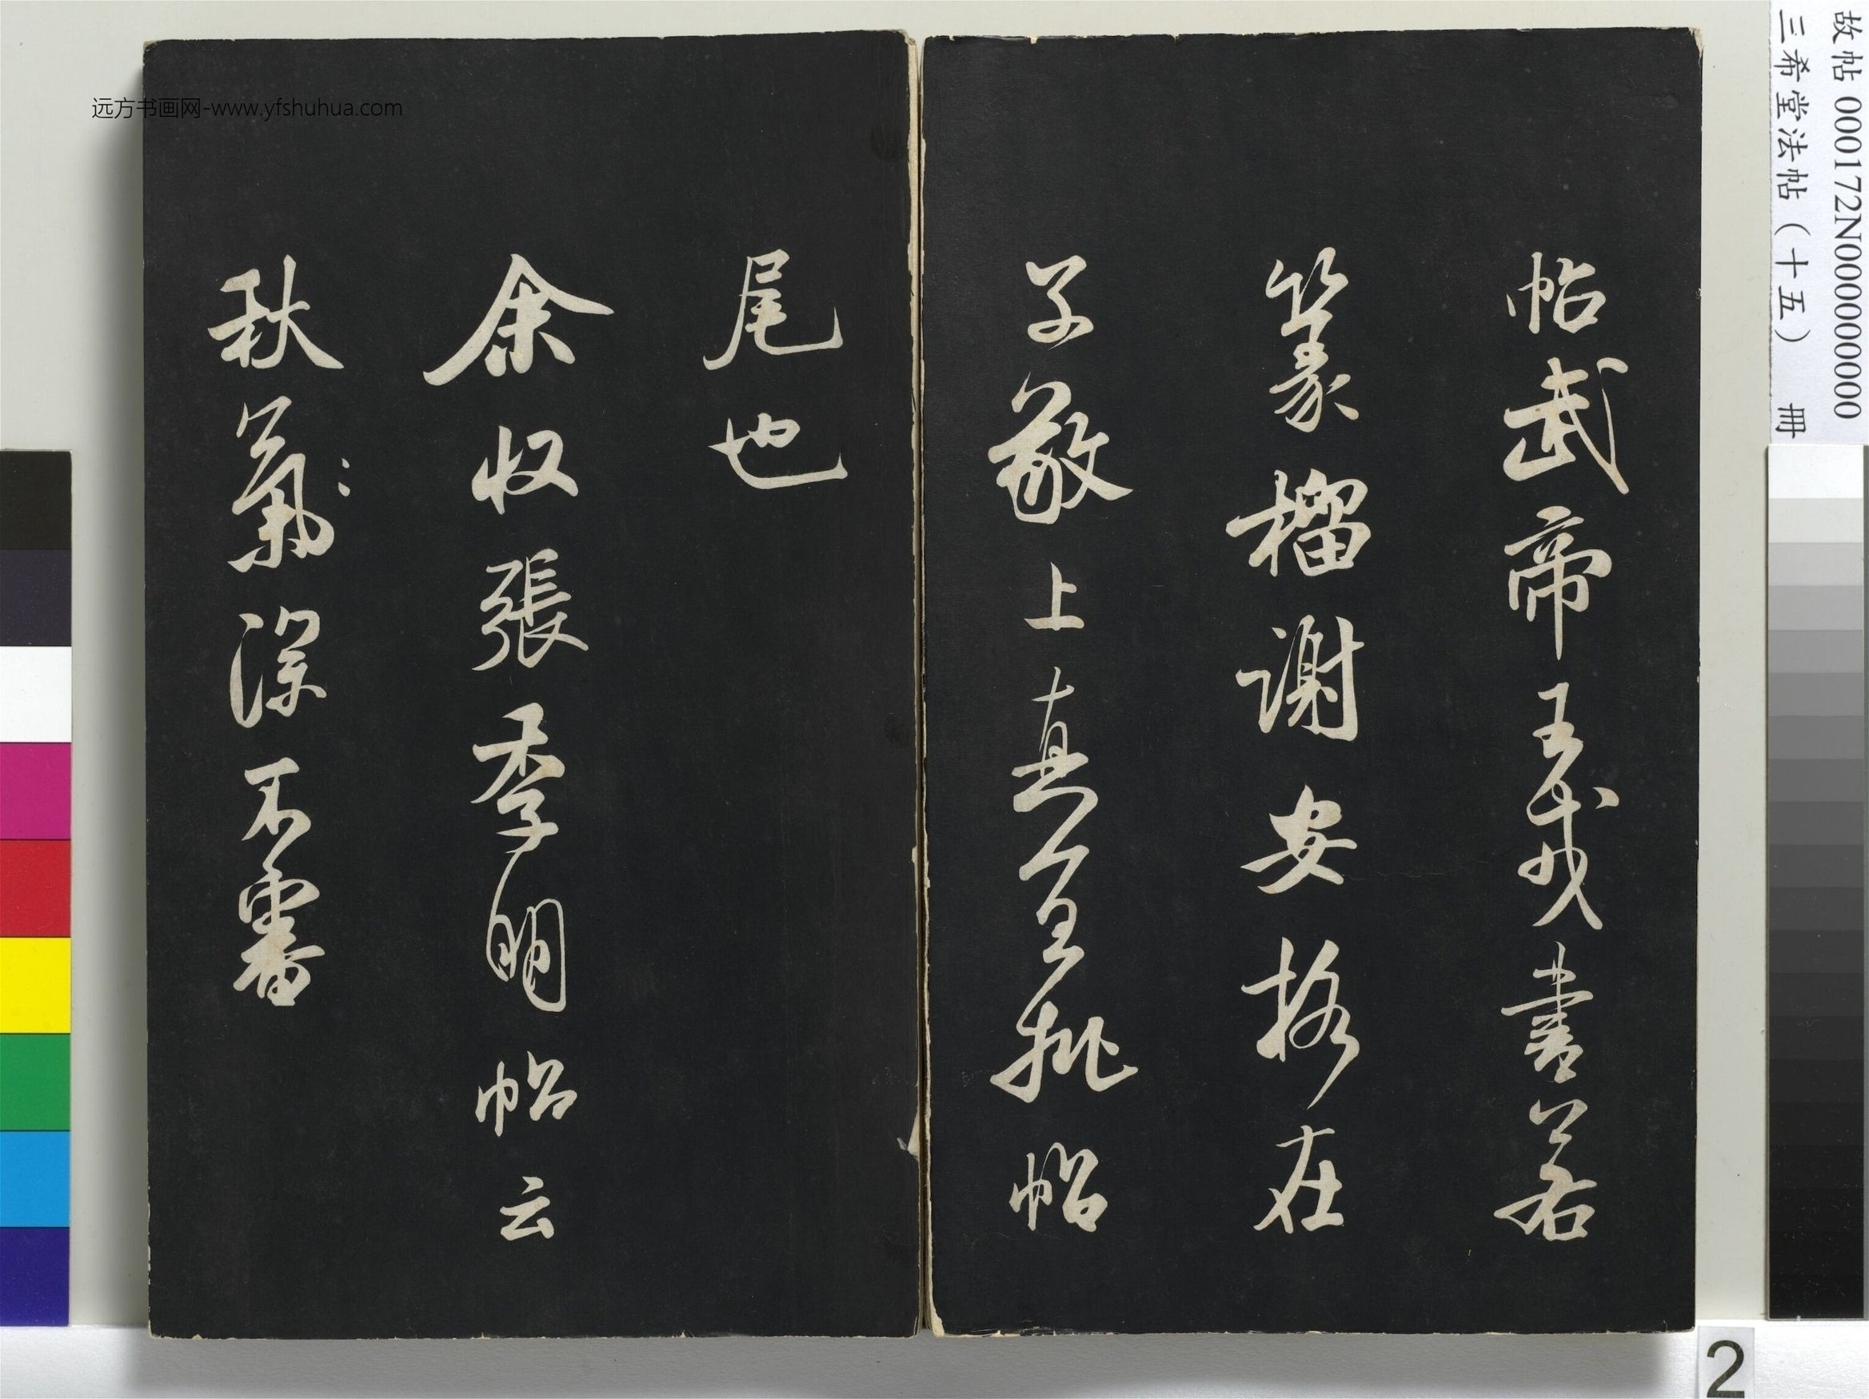 帖武帝王戎書若
篆籀謝安格在
子敬上真宜批帖
尾也
余收張季明帖云
秋氣深不審
远方书画网-www.yfshuhua.com
故帖 000172N000000000
三希堂法帖（十五） 冊
2